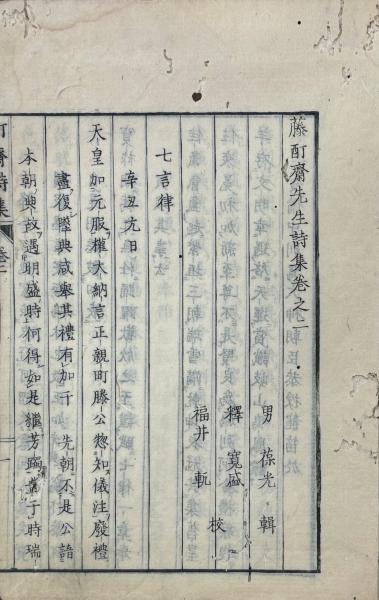 藤町齋先生詩集卷之一
男 葆光 輯
釋 寬盛
福井 軏 校
七言律
辛丑元日
天皇加元服權大納言正親町勝公惣知儀注廢禮
盡復墜典咸舉其禮有加于 先朝不是公諳
本朝典故遇明盛時何得如是繼芳躅常于時瑞
齋詩集 卷一